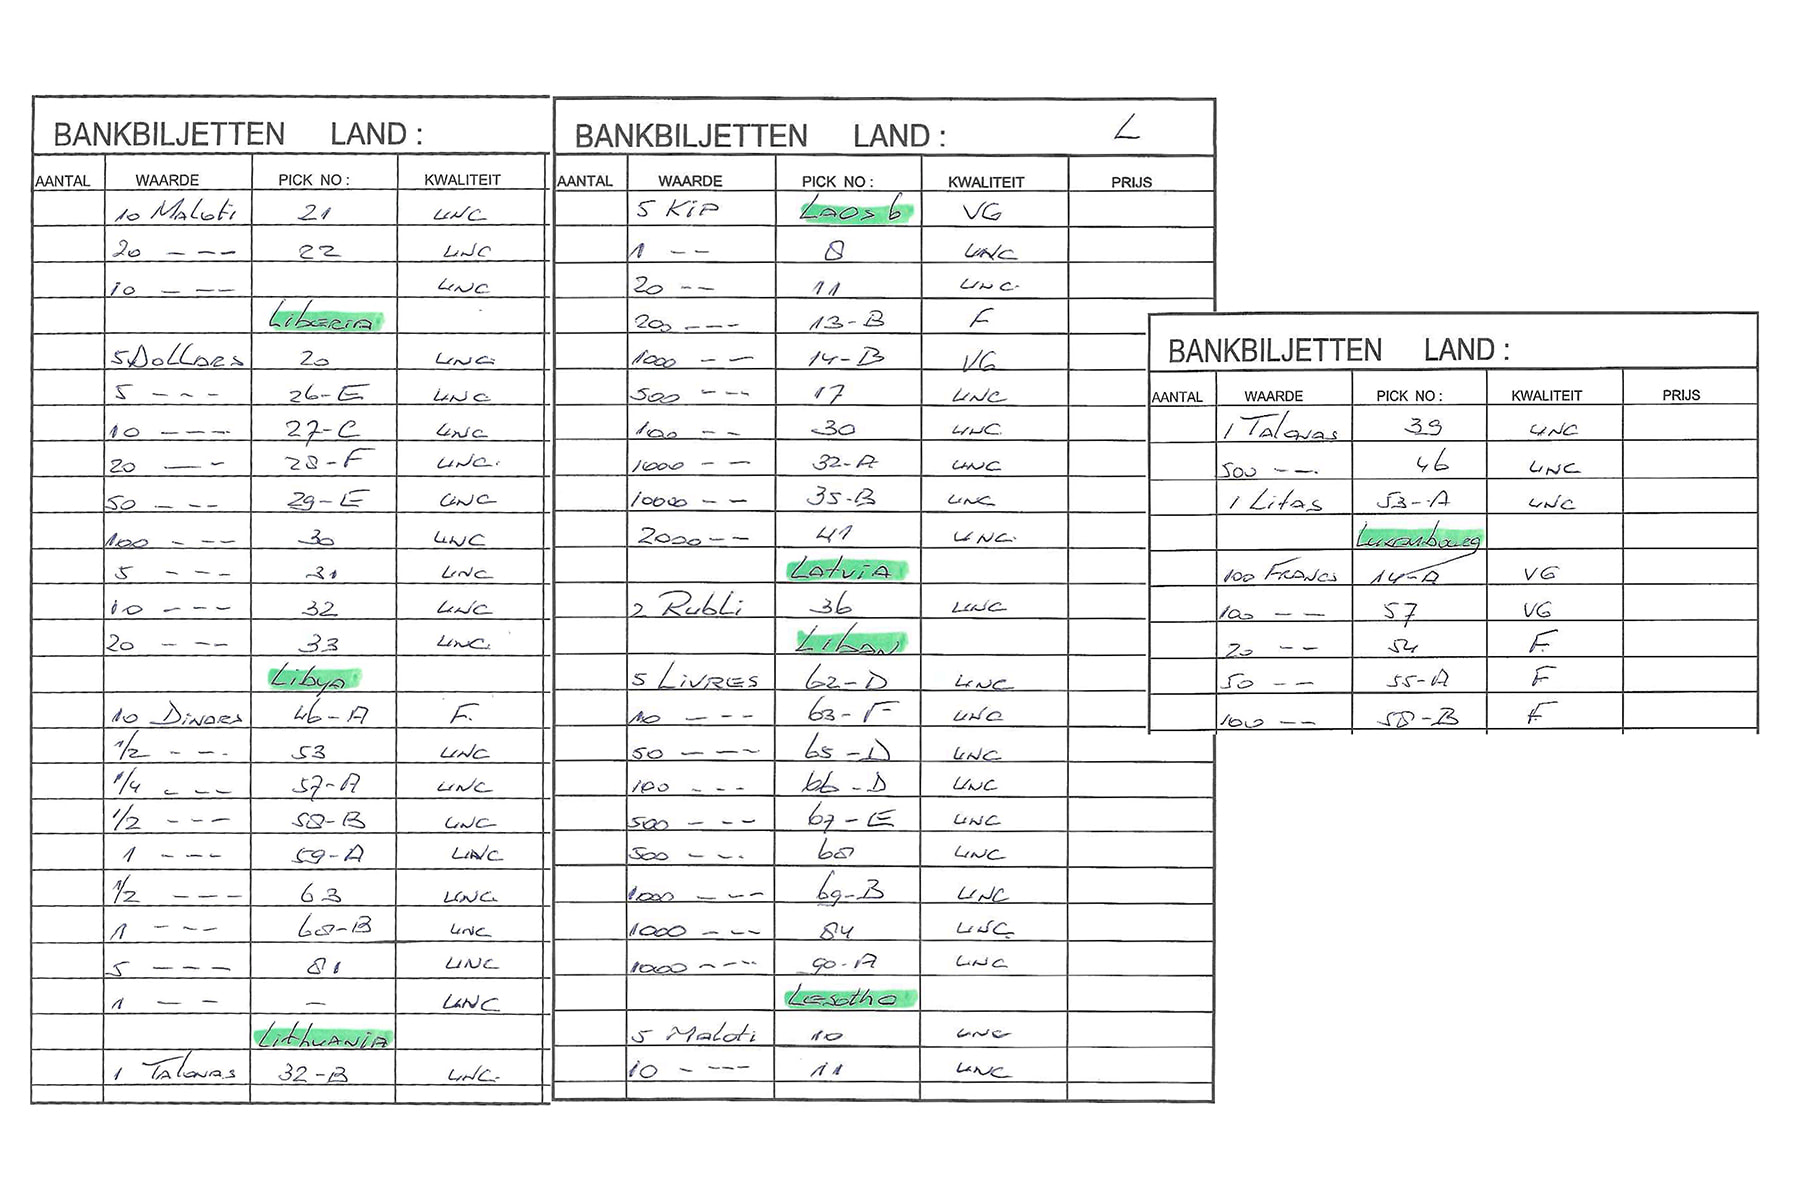 BANKBILJETTEN LAND :
AANTAL WAARDE PICK NO : KWALITEIT
10 Maloti 21 UNC
20 - - - 22 UNC
10 - - - UNC
Liberia
5 Dollars 20 UNC
5 - - - 26-E UNC
10 - - - 27-C UNC
20 - - - 28-F UNC.
50 - - - 29-E UNC
100 - - - 30 UNC
5 - - - 31 UNC
10 - - - 32 UNC
20 - - - 33 UNC.
Libya
10 Dinars 46-A F.
1/2 - - - 53 UNC
1/4 - - - 57-A UNC
1/2 - - - 58-B UNC
1 - - - 59-A UNC
1/2 - - - 63 UNC
1 - - - 68-B UNC
5 - - - 81 UNC
1 - - - - UNC
Lithuania
1 Talonas 32-B UNC.
BANKBILJETTEN LAND : L
AANTAL WAARDE PICK NO : KWALITEIT PRIJS
5 Kip Laos 6 VG
1 - - 8 UNC
20 - - 11 UNC.
200 - - - 13-B F
1000 - - 14-B VG
500 - - - 17 UNC
100 - - 30 UNC
1000 - - 32-A UNC
10000 - - 35-B UNC
2000 - - 41 UNC.
Latvia
2 Rubli 36 UNC
Liban
5 Livres 62-D UNC
10 - - - 63-F UNC
50 - - - 65-D UNC
100 - - - 66-D UNC
500 - - - 67-E UNC
500 - - - 68 UNC
1000 - - - 69-B UNC
1000 - - - 84 UNC
1000 - - - 90-A UNC
Lesotho
5 Maloti 10 UNC
10 - - - 11 UNC
BANKBILJETTEN LAND :
AANTAL WAARDE PICK NO : KWALITEIT PRIJS
1 Talonas 39 UNC
500 - - . 46 UNC
1 Litas 53-A UNC
Luxembourg
100 Francs 14-A VG
100 - - 57 VG
20 - - 54 F.
50 - - 55-A F
100 - - 58-B F